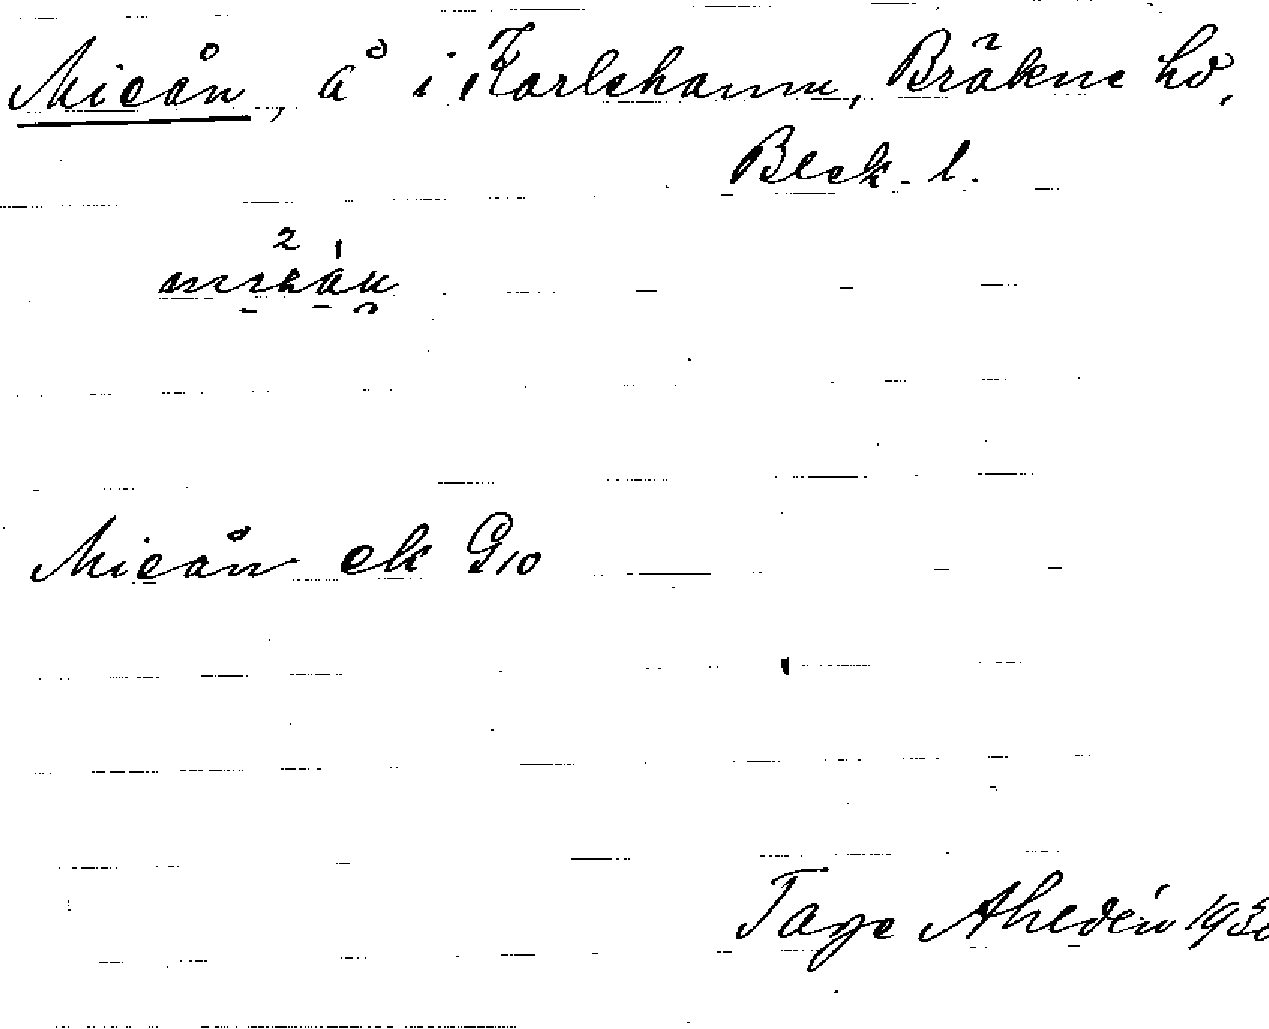 Mieån, å i Karlshamn, Bräkne hd,
Blek. l.
Mieån ek G10
Tage Ahldén 193